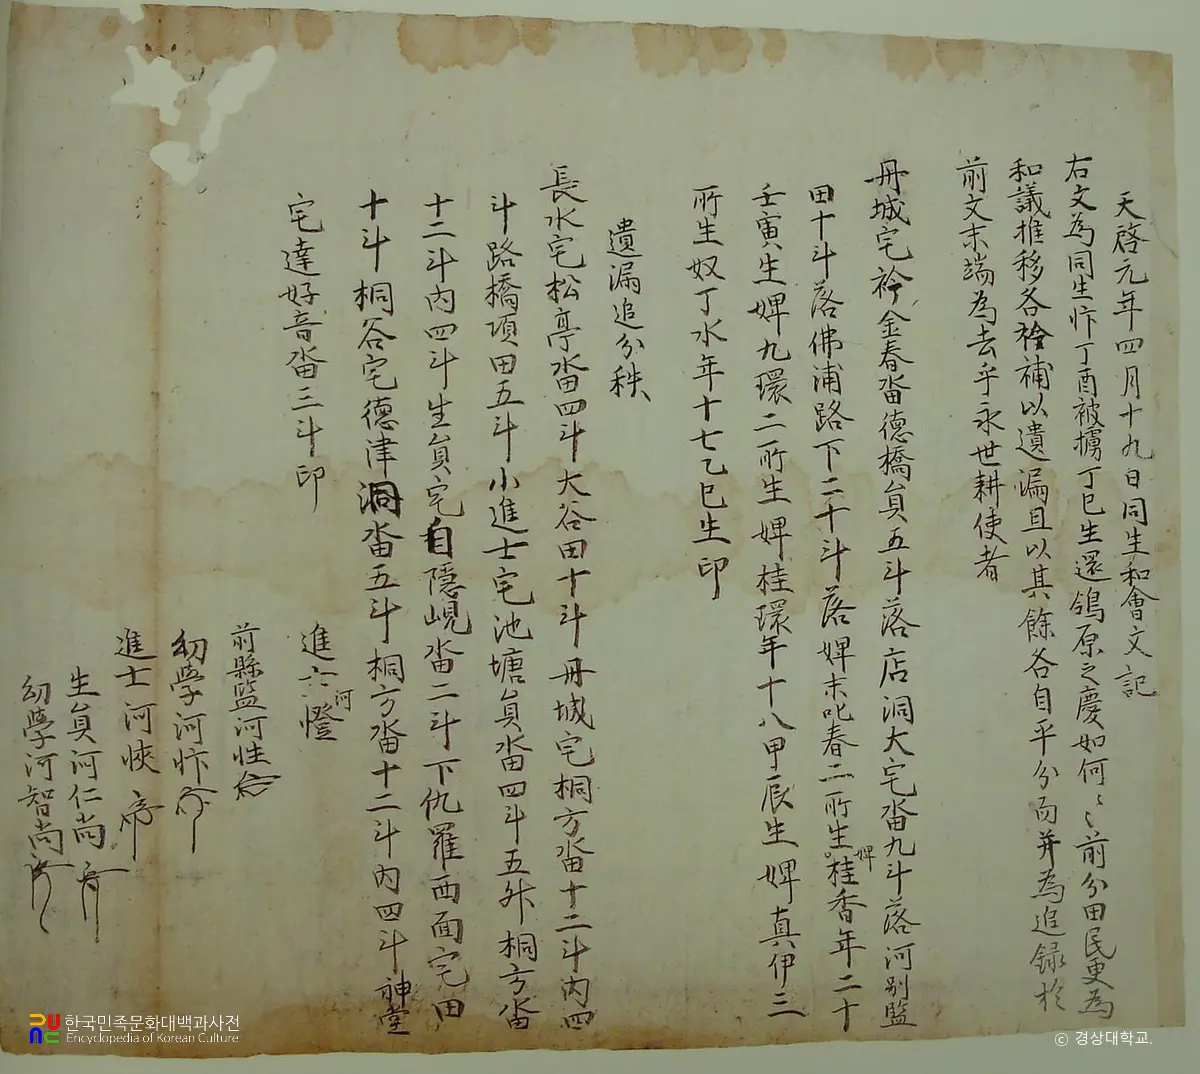 天啓元年四月十九日同生和會文記
右文為同生忭丁酉被擄丁巳生還鴒原之慶如何〻前分田民更為
和議推移各衿補以遺漏且以其餘各自平分而并為追録於
前文末端為去乎永世耕使者
丹城宅衿金春畓德橋員五斗落店洞大宅畓九斗落河別監
田十斗落佛浦路下二十斗落婢末叱春二所生婢桂香年二十
壬寅生婢九環二所生婢桂環年十八甲辰生婢真伊三
所生奴丁水年十七乙巳生印
遺漏追分秩
長水宅松亭畓四斗大谷田十斗丹城宅桐方畓十二斗內四
斗路橋項田五斗小進士宅池塘員畓四斗五升桐方畓
十二斗內四斗生員宅自隱峴畓二斗下仇羅西面宅田
十斗桐谷宅德津洞畓五斗桐方畓十二斗內四斗神堂
宅達好音畓三斗印
進士河憕
前縣監河惺
幼學河忭
進士河悏
生員河仁尚
幼學河智尚
한국민족문화대백과사전
Encyclopedia of Korean Culture
© 경상대학교.